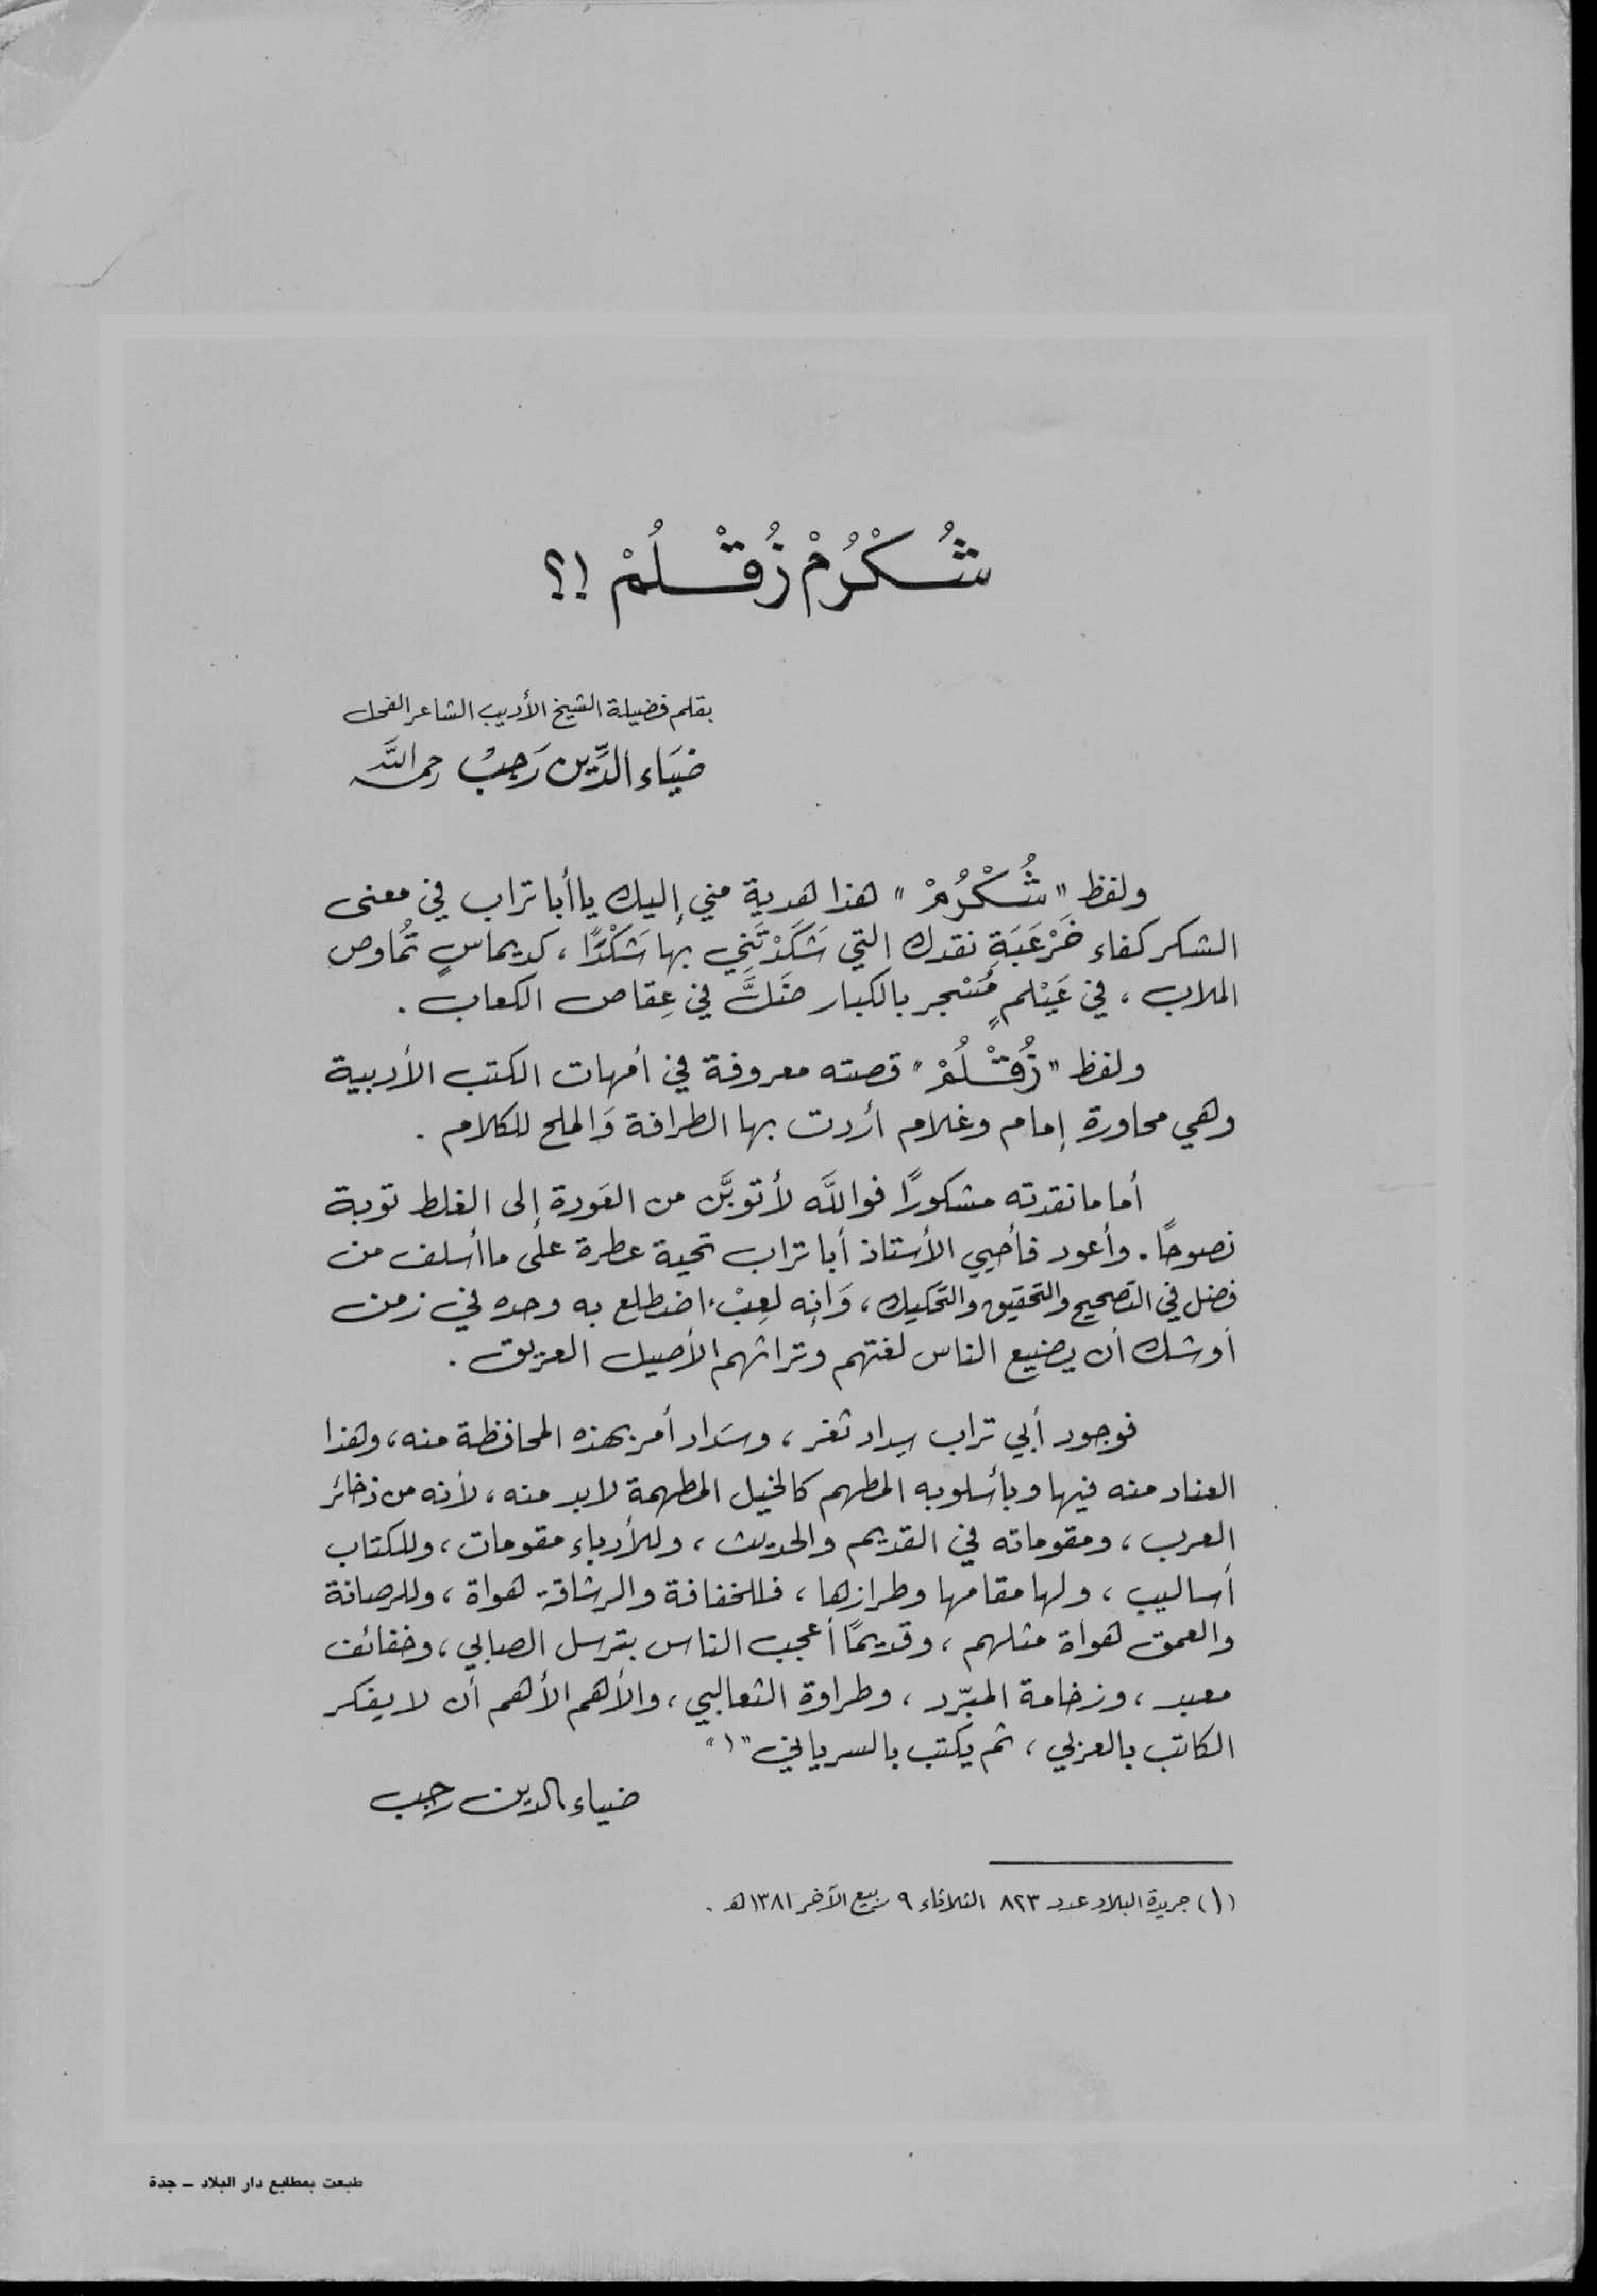 شُكْرُمْ زُقْلُمْ !؟
بقلم فضيلة الشيخ الأديب الشاعر الفحل
ضيَاء الدِّين رَجبْ رحمه اللَّه
ولفظ " شُكْرُمْ " هذا هدية مني إليك يا أبا تراب في معنى
الشكر كفاء خَرْعَبَةِ نقدك التي شَكَدْتَنِي بها شَكْدًا ، كديماسٍ تُماوص
الملاب ، في عَيْلمٍ مُسْجر بالكبار ضَلَّ في عِقاص الكعاب .
ولفظ " زُقْلُمْ " قصته معروفة في أمهات الكتب الأدبية
وهي محاورة إمام وغلام أردت بها الطرافة وَالملح للكلام .
أما ما نقدته مشكورًا فواللَّه لأتوبَّن من العَودة إلى الغلط توبة
نصوحاً . وأعود فأحيي الأستاذ أبا تراب تحية عطرة على ما أسلف من
فضل في التصحيح والتحقيق والتحكيك ، وَإنه لعِبْء اضطلع به وحده في زمن
أوشك أن يضيع الناس لغتهم وتراثهم الأصيل العريق .
فوجود أبي تراب سداد ثغر ، وسَداد أمر بهذه المحافظة منه ، وهذا
العناد منه فيها وبأسلوبه المطهم كالخيل المطهمة لابد منه ، لأنه من ذخائر
العرب ، ومقوماته في القديم والحديث ، وللأدباء مقومات ، وللكتاب
أساليب ، ولها مقامها وطرازها ، فللخفافة والرشاقة هواة ، وللرصانة
والعمق هواة مثلهم ، وقديمًا أعجب الناس بترسل الصابي ، وخفائف
معبد ، وزخامة المبرّد ، وطراوة الثعالبي ، والأهم الأهم أن لا يفكر
الكاتب بالعربي ، ثم يكتب بالسرياني "١"
ضياء الدين رجب
(١) جريدة البلاد عدد ٨٢٣ الثلاثاء ٩ ربيع الآخر ١٣٨١هـ .
طبعت بمطابع دار البلاد - جدة